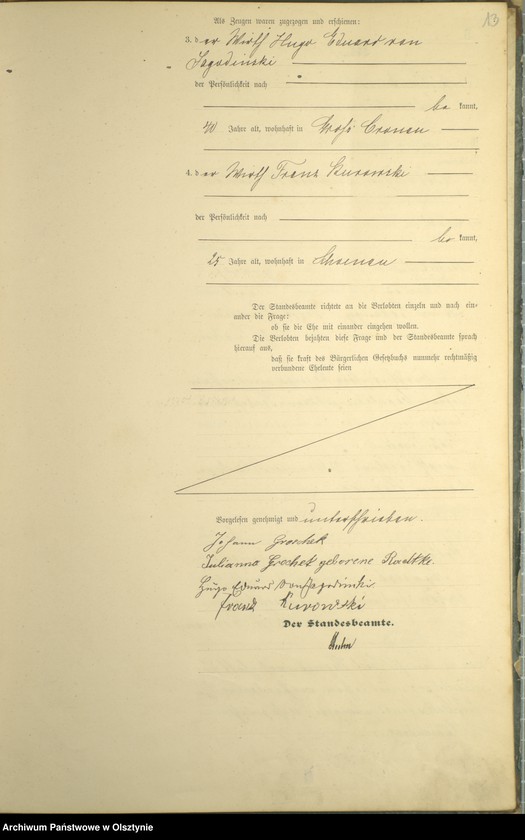 13
Als Zeugen waren zugezogen und erschienen:
3. der Wirth Hugo Eduard von
Jagodinski
der Persönlichkeit nach
be kannt,
40 Jahre alt, wohnhaft in Groß Cronau
4. der Wirth Franz Kurowski
der Persönlichkeit nach
be kannt,
25 Jahre alt, wohnhaft in
Der Standesbeamte richtete an die Verlobten einzeln und nach ein-
ander die Frage:
ob sie die Ehe mit einander eingehen wollen.
Die Verlobten bejahten diese Frage und der Standesbeamte sprach
hierauf aus,
daß sie kraft des Bürgerlichen Gesetzbuchs nunmehr rechtmäßig
verbundene Eheleute seien
Vorgelesen, genehmigt und unterschrieben.
Johann Grochek
Julianna Grochek geborene Radtke.
Hugo Eduard von Jagodinski
Franz Kurowski
Der Standesbeamte.
Archiwum Państwowe w Olsztynie